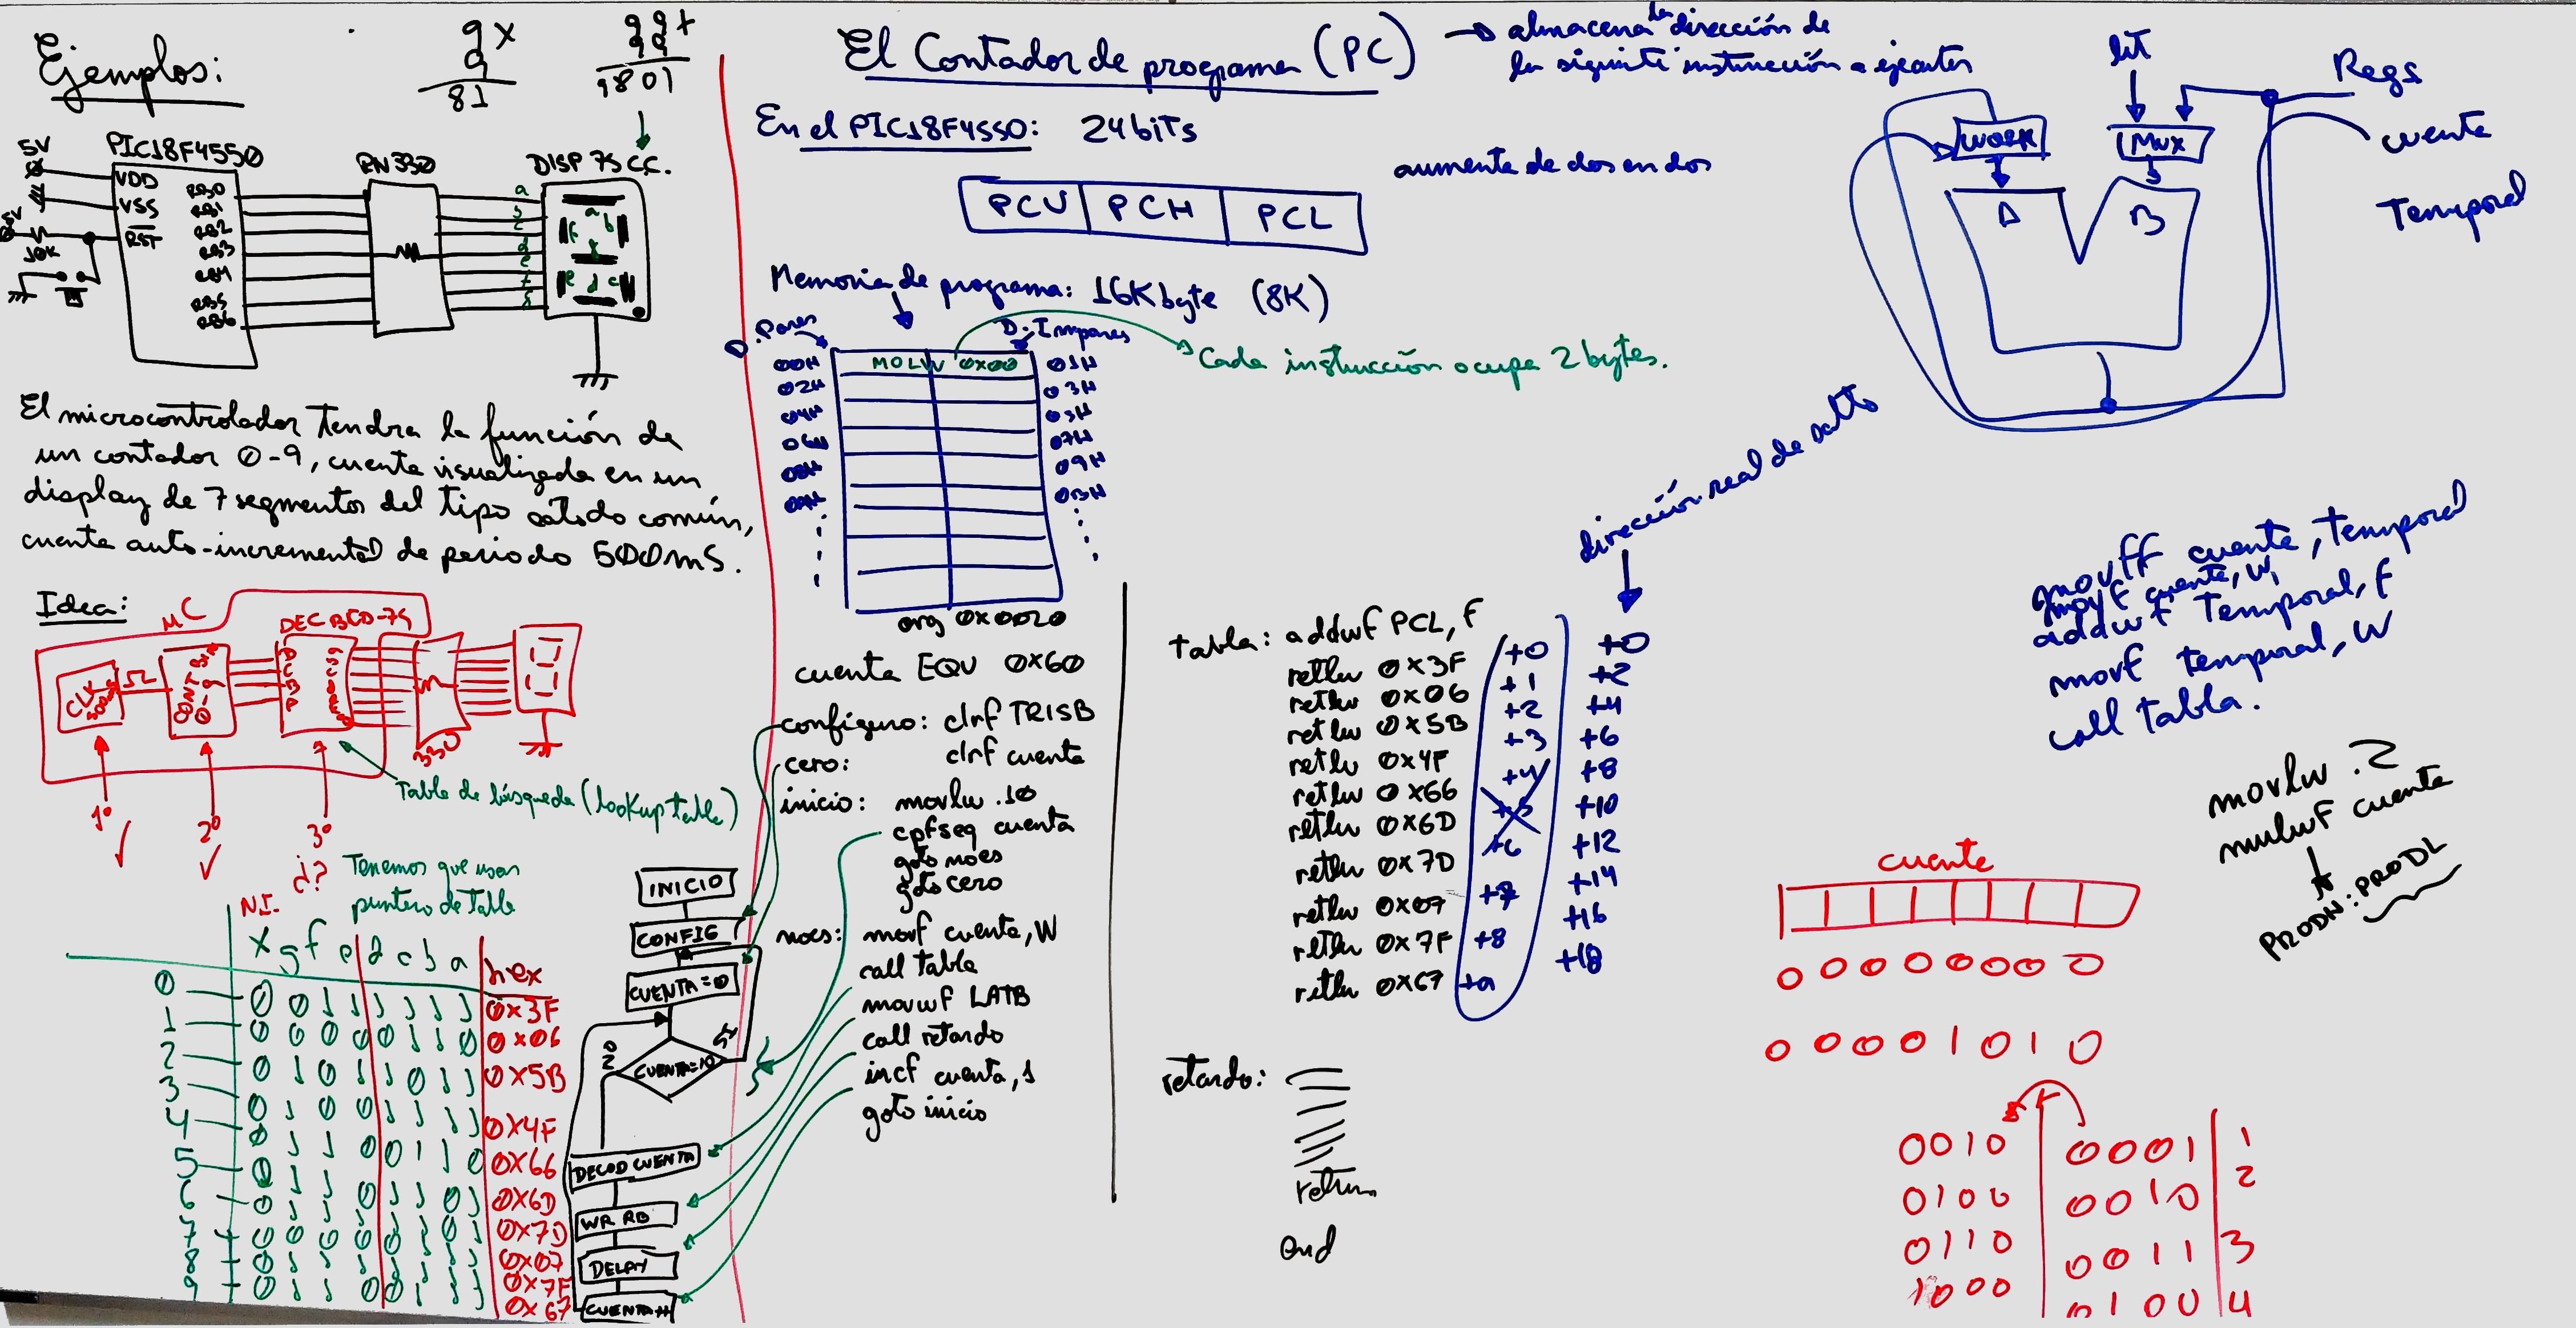 Ejemplos:
9x
9
81
99x
99
9801
PIC18F4550
5V
VDD
VSS
RST
5V
10K
RB0
RB1
RB2
RB3
RB4
RB5
RB6
RN330
DISP 7S C.C.
a
b
c
d
e
f
g
a
f b
g
e d c
El microcontrolador tendra la función de
un contador 0-9, cuenta visualizada en un
display de 7 segmentos del tipo cátodo común,
cuenta auto-incremental de periodo 500mS.
Idea:
μC
DEC BCD-7S
CLK
500ms
CONT
0-9
D
C
B
A
330
1º
2º
3º
¿?
Tabla de búsqueda (lookup table)
Tenemos que usar
puntero de tabla
N.I.
x g f e d c b a hex
0 0 0 1 1 1 1 1 1 0x3F
1 0 0 0 0 0 1 1 0 0x06
2 0 1 0 1 1 0 1 1 0x5B
3 0 1 0 0 1 1 1 1 0x4F
4 0 1 1 0 0 1 1 0 0x66
5 0 1 1 0 1 1 0 1 0x6D
6 0 1 1 1 1 1 0 1 0x7D
7 0 0 0 0 0 1 1 1 0x07
8 0 1 1 1 1 1 1 1 0x7F
9 0 1 1 0 0 1 1 1 0x67
INICIO
CONFIG
CUENTA=0
CUENTA=10
NO
SI
DECOD CUENTA
WR RB
DELAY
CUENTA++
El Contador de programa (PC)
almacena la dirección de
la siguiente instrucción a ejecutar
En el PIC18F4550: 24 bits
aumenta de dos en dos
PCU PCH PCL
Memoria de programa: 16Kbyte (8K)
D. Pares
D. Impares
00H MOLW 0x00 01H
02H 03H
04H 05H
06H 07H
08H 09H
0AH 0BH
Cada instrucción ocupa 2 bytes.
org 0x0020
cuenta EQU 0x60
configuro: clrf TRISB
cero: clrf cuenta
inicio: movlw .10
cpfseq cuenta
goto noes
goto cero
noes: movf cuenta,W
call tabla
movwf LATB
call retardo
incf cuenta,1
goto inicio
dirección real de salto
tabla: addwf PCL, f
retlw 0x3F +0 +0
retlw 0x06 +1 +2
retlw 0x5B +2 +4
retlw 0x4F +3 +6
retlw 0x66 +4 +8
retlw 0x6D +5 +10
retlw 0x7D +6 +12
retlw 0x07 +7 +14
retlw 0x7F +8 +16
retlw 0x67 +9 +18
retardo:
return
end
lit
Regs
WORK
Mux
cuenta
Temporal
A
B
movff cuenta, temporal
movf cuenta, W
addwf temporal, f
movf temporal, W
call tabla.
movlw .2
mulwf cuenta
PRODH:PRODL
cuenta
0 0 0 0 0 0 0 0
0 0 0 0 1 0 1 0
0010 0001 1
0100 0010 2
0110 0011 3
1000 0100 4